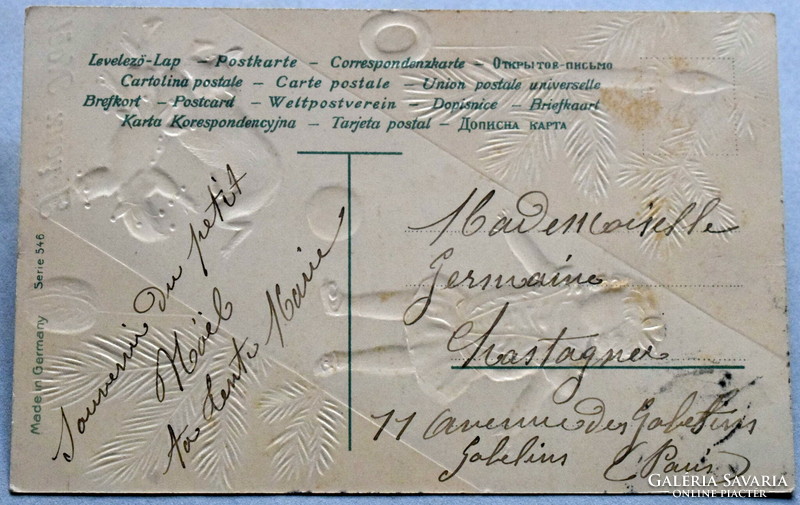 Levelező-Lap – Postkarte – Correspondenzkarte – Открытое-письмо
Cartolina postale – Carte postale – Union postale universelle
Brefkort – Postcard – Weltpostverein – Dopisnice – Briefkaart
Karta Korespondencyjna – Tarjeta postal – Дописна карта
Made in Germany Serie 546
Souvenir du petit
Noël
ta tante Marie
Mademoiselle
Germaine
Chastagner
11 avenue des Gobelins
Gobelins (Paris)
GALERIA SAVARIA
ONLINE PIACTÉR